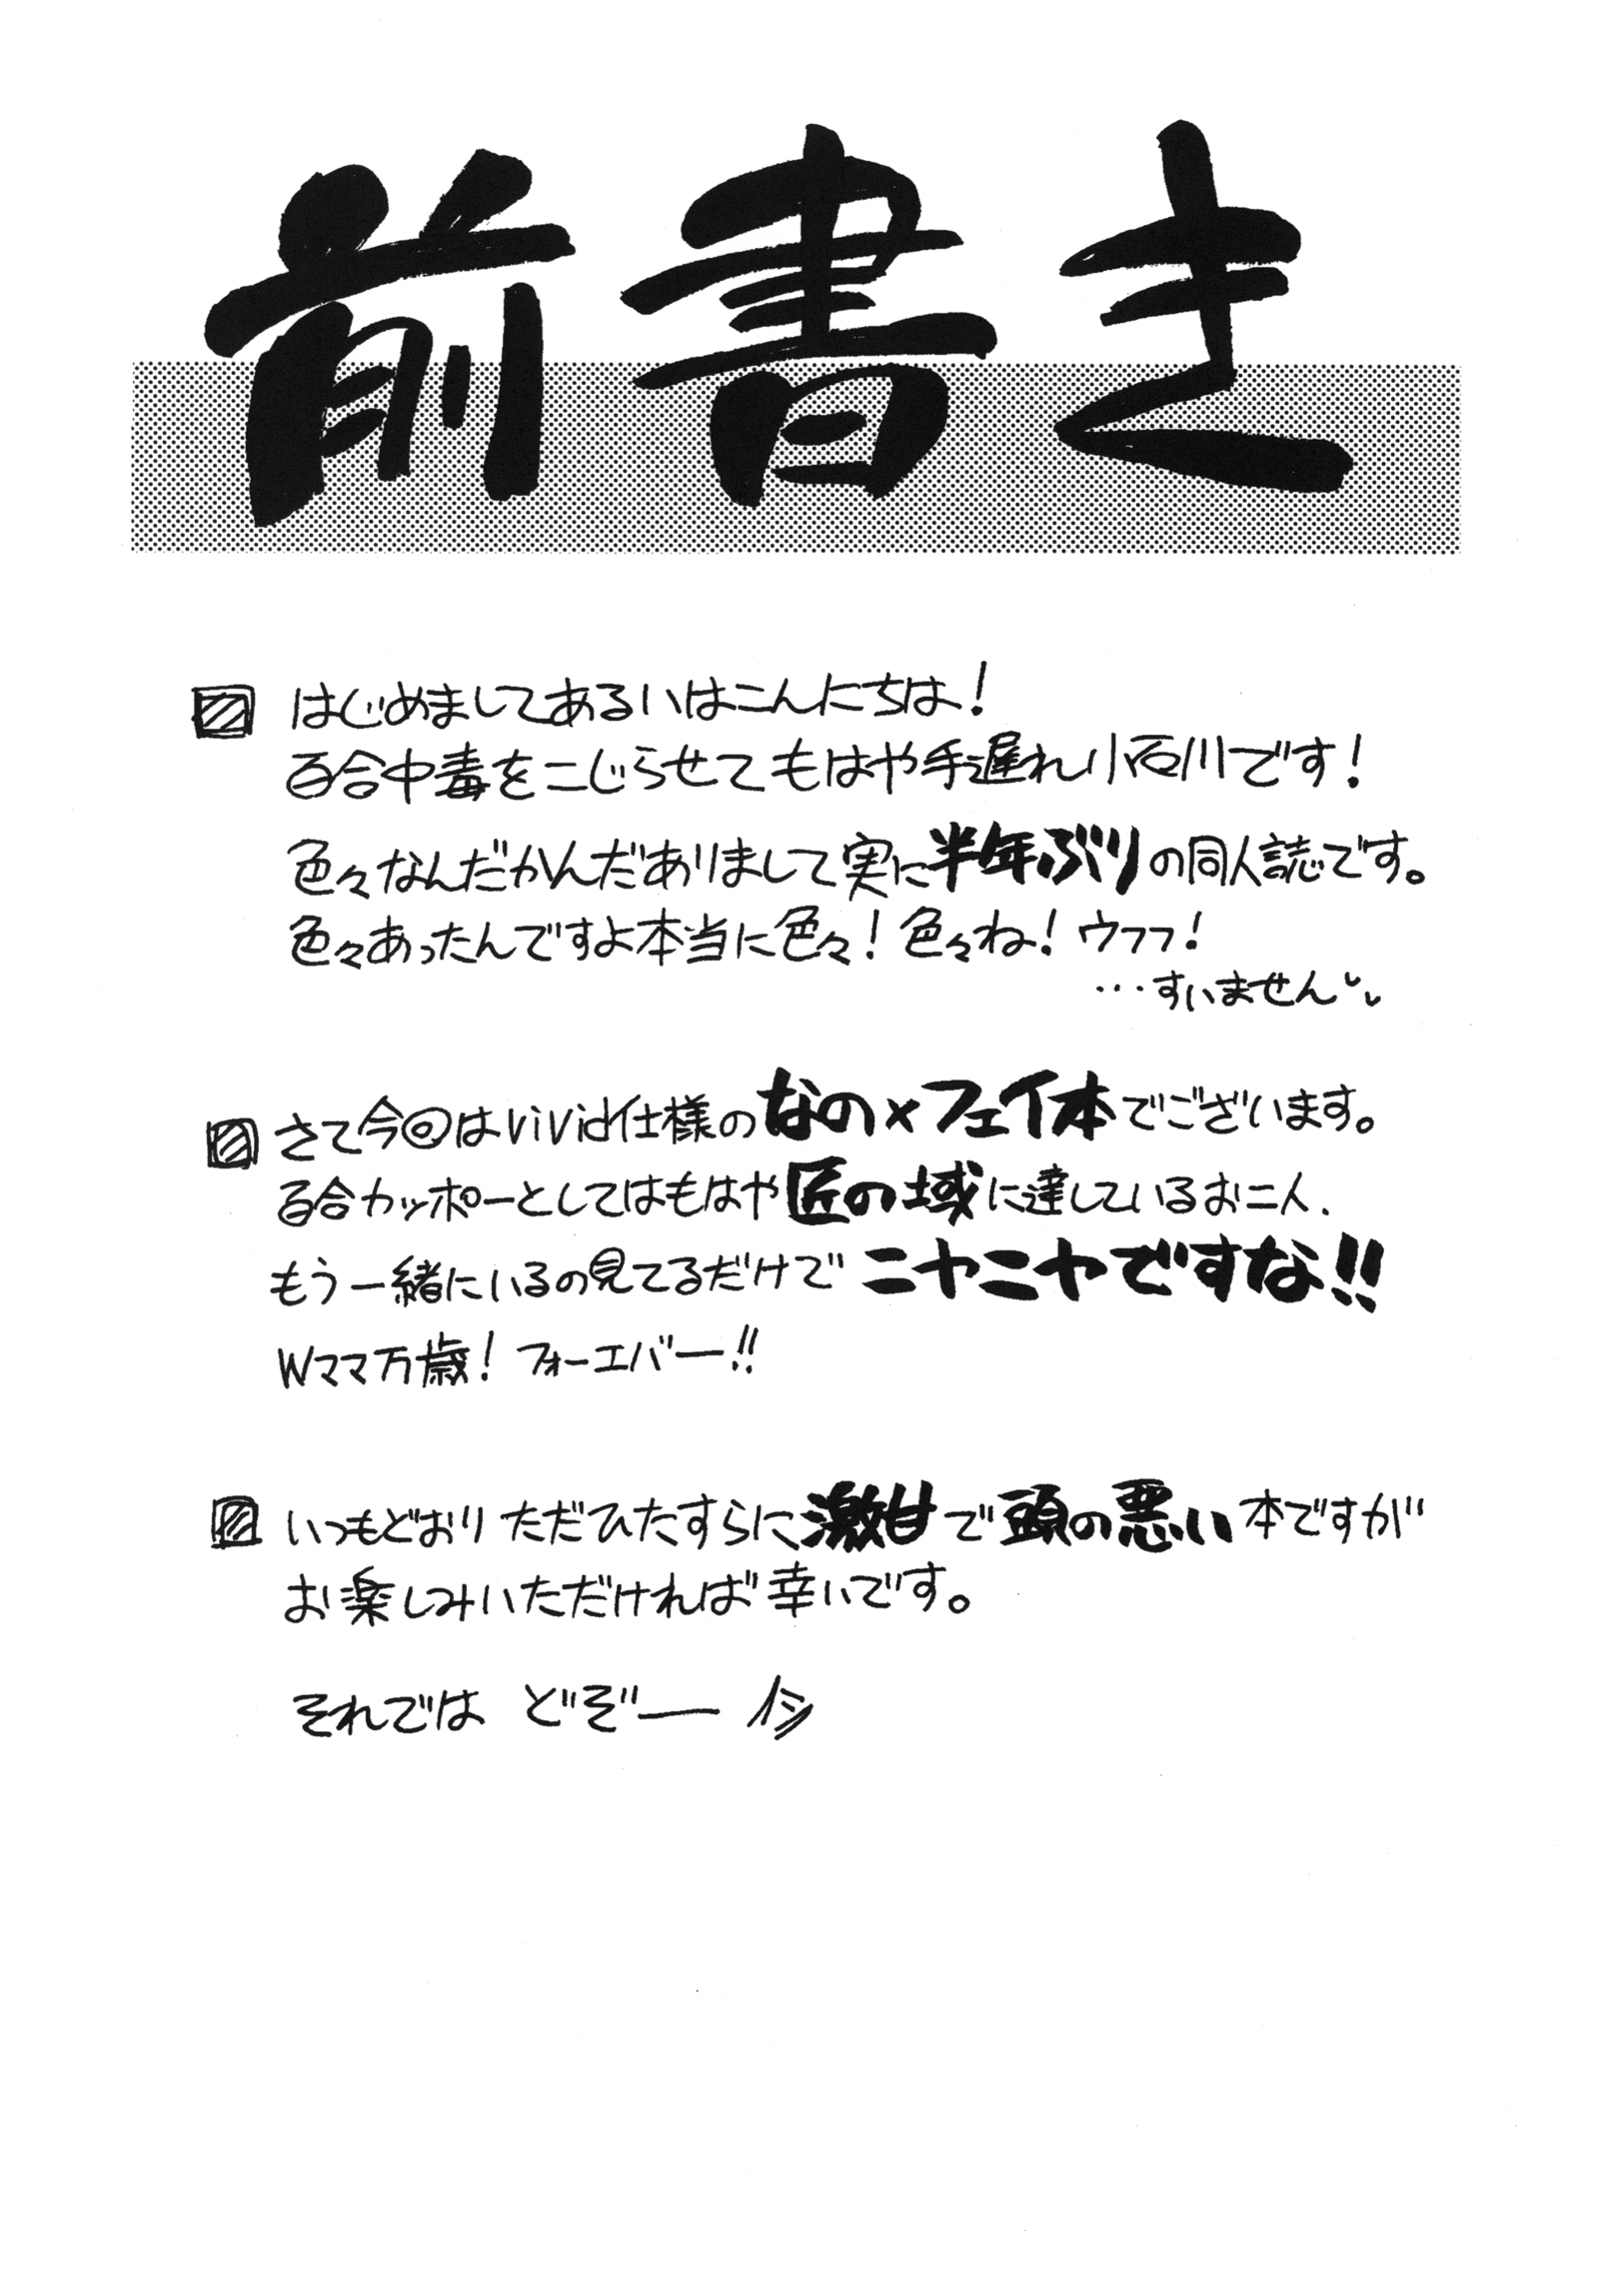 前書き
はじめましてあるいはこんにちは!
百合中毒をこじらせてもはや手遅れ小石川です!
色々なんだかんだありまして実に半年ぶりの同人誌です。
色々あったんですよ本当に色々!色々ね!ウフフ!
…すいません
さて今回はvivid仕様のなの×フェイ本でございます。
百合カッポーとしてはもはや匠の域に達しているお二人.
もう一緒にいるの見てるだけでニヤニヤですな!!
Wママ万歳!フォーエバー!!
いつもどおりただひたすらに激甘で頭の悪い本ですが
お楽しみいただければ幸いです。
それでは どぞー